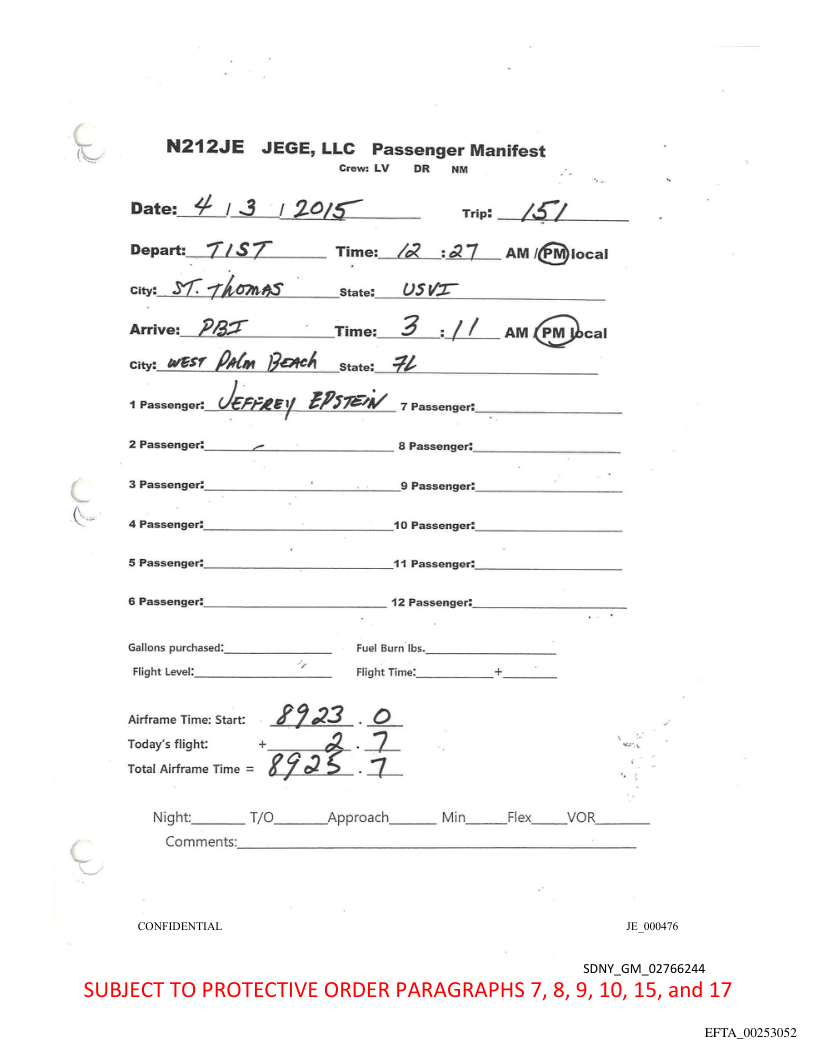 N212JE JEGE, LLC Passenger Manifest
Crew: LV DR NM
Date: 4 / 3 / 2015 Trip: 151
Depart: TIST Time: 12 : 27 AM / PM local
City: ST. THOMAS State: USVI
Arrive: PBI Time: 3 : 11 AM / PM local
City: WEST PALM BEACH State: FL
1 Passenger: JEFFREY EPSTEIN 7 Passenger:
2 Passenger: 8 Passenger:
3 Passenger: 9 Passenger:
4 Passenger: 10 Passenger:
5 Passenger: 11 Passenger:
6 Passenger: 12 Passenger:
Gallons purchased: Fuel Burn lbs.
Flight Level: Flight Time: +
Airframe Time: Start: 8923 . 0
Today's flight: + 2 . 7
Total Airframe Time = 8925 . 7
Night: T/O Approach Min Flex VOR
Comments:
CONFIDENTIAL JE_000476
SDNY_GM_02766244
SUBJECT TO PROTECTIVE ORDER PARAGRAPHS 7, 8, 9, 10, 15, and 17
EFTA_00253052